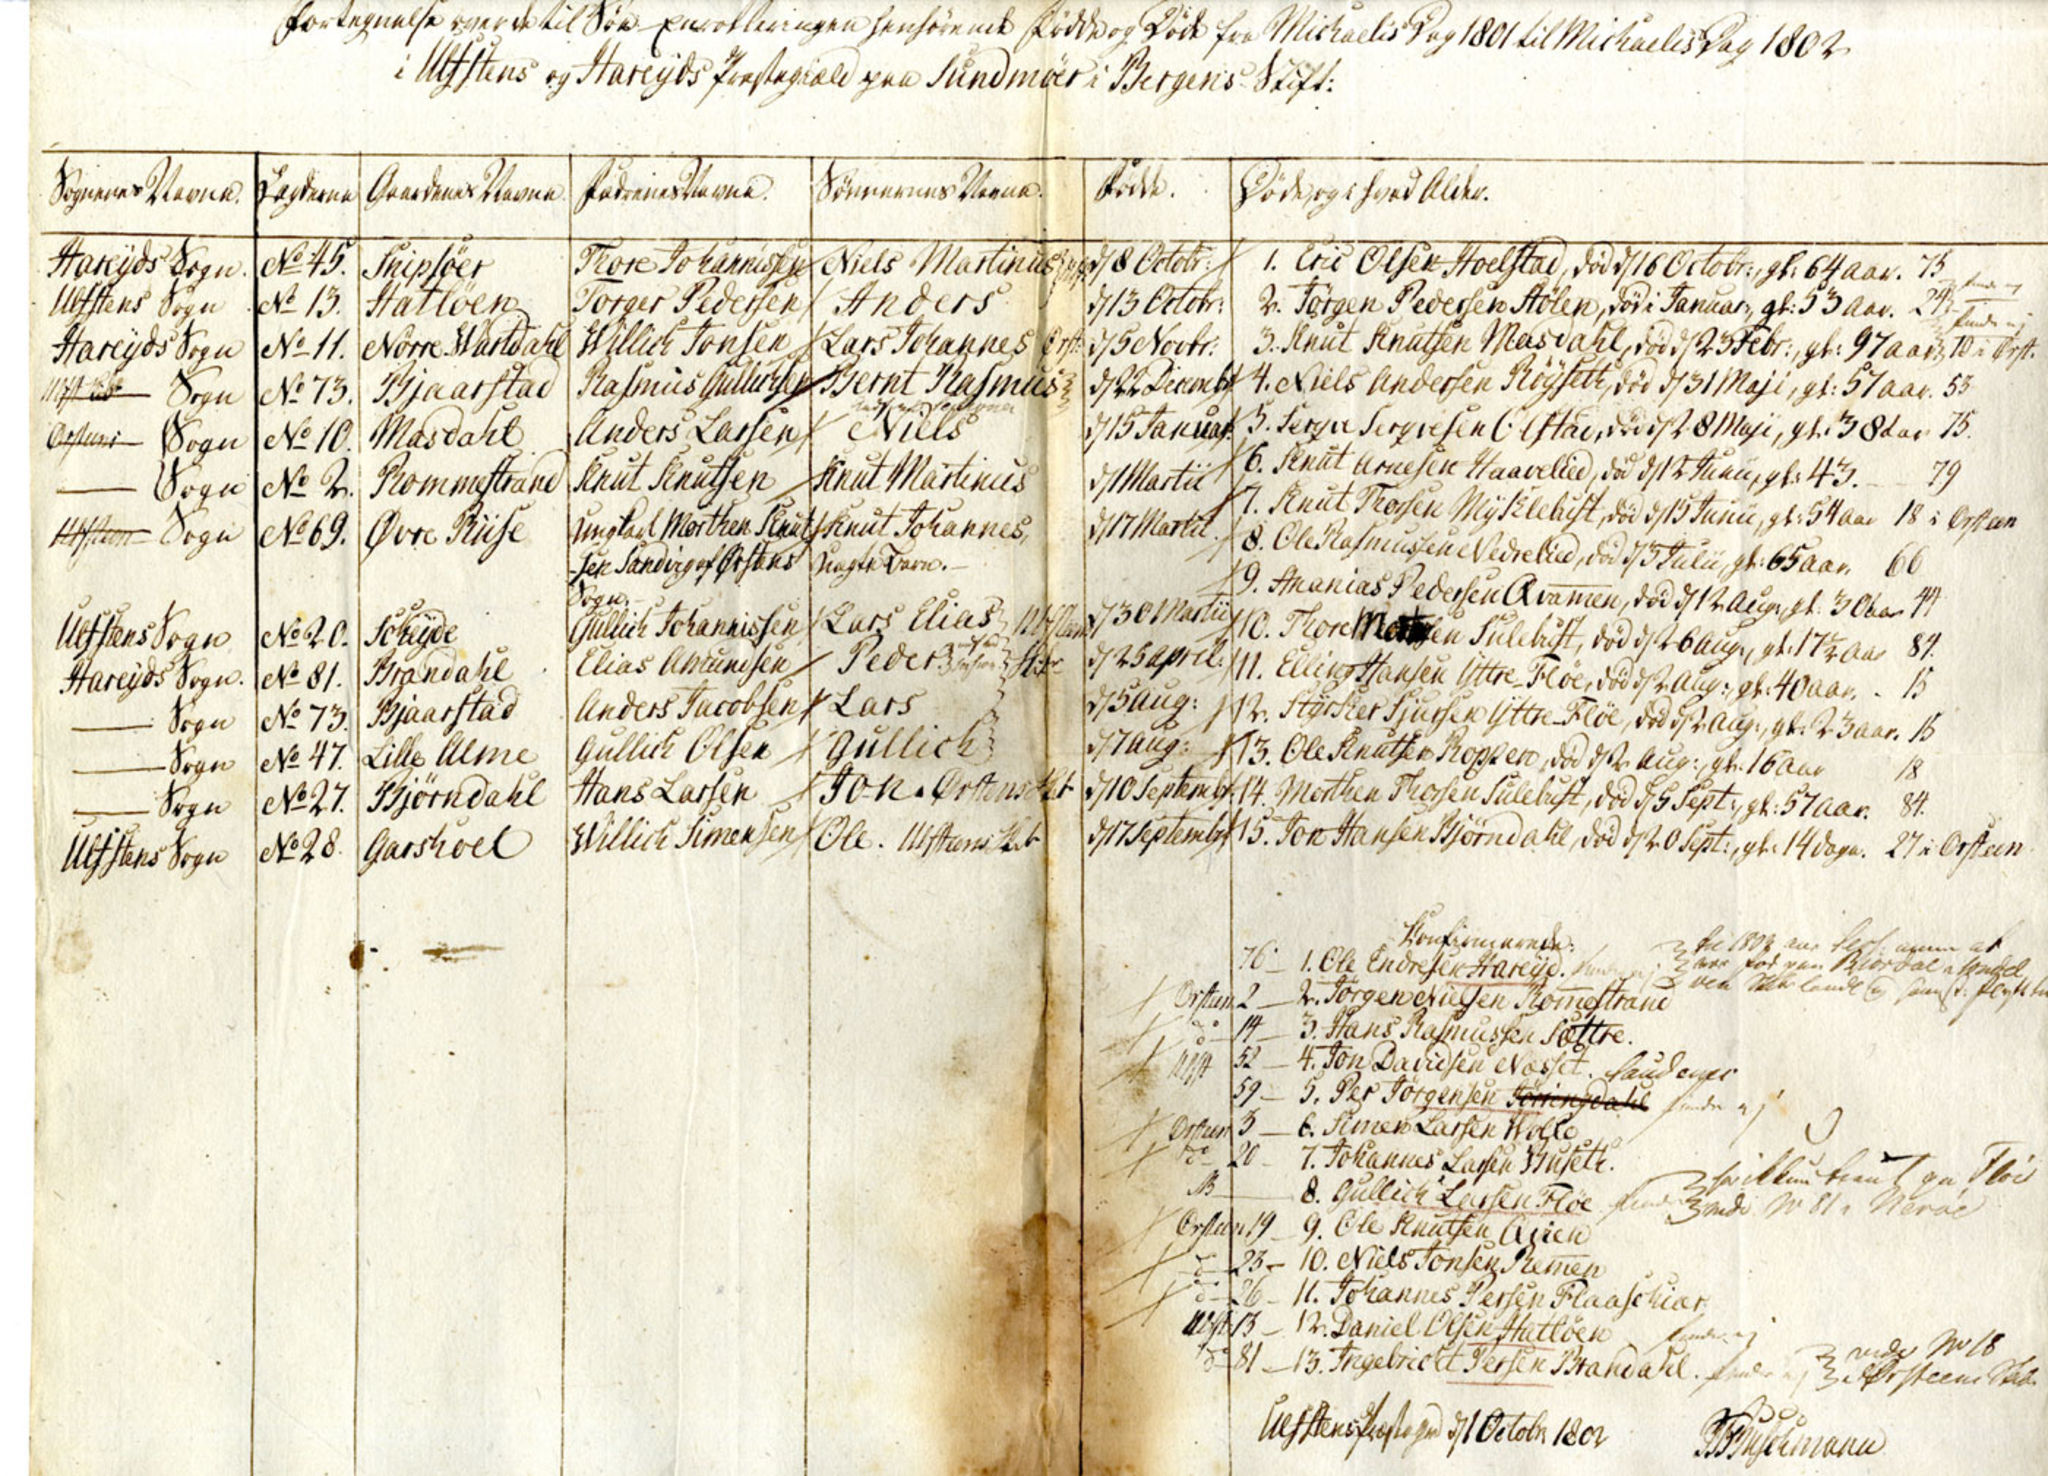 Fortegnelse over de til Søe-Enrolleringen henhørende Fødde og Døde fra Michaelis Dag 1801 til Michaelis Dag 1802
i Ulfstens og Hareyds Præstegiæld paa Sundmøer i Bergens Stift:
Sognenes Navne. Lægderne Gaardenes Navne. Fædrenes Navne. Sønnernes Navne. Fødde. Døde, og i hvad Alder.
Hareyds Sogn. No 45. Snipsøer Thore Johannissen Niels Martinus d/8 Octobr: 1. Eric Olsen Hoelstad, død d/16 Octobr:, gl: 64 aar. 75
Ulfstens Sogn No 13. Hatløen Torger Pedersen Anders d/13 Octobr: 2. Jørgen Pedersen Stølen, død i Januar:, gl: 53 aar. 24
Hareyds Sogn No 11. Nørre Wartdahl Willich Jonsen Lars Johannes Ørst: d/5 Novbr: 3. Knut Knutsen Masdahl, død d/23 Febr:, gl: 97 aar. 10 i Ørst.
Sogn No 73. Bjaarstad Rasmus Gullichsen Bernt Rasmus d/22 Decembr 4. Niels Andersen Røyseth, død d/31 Maji, gl: 57 aar. 53
Sogn No 10. Masdahl Anders Larsen Niels d/15 Januar. 5. Olstad, død d/28 Maji, gl: 38 aar 75.
Sogn No 2. Rommestrand Knut Knutsen Knut Martinus d/1 Martii 6. Knut Arnesen Haavelied, død d/12 Junii, gl: 43. 79
Sogn No 69. Øvre Riise Ungkarl Morthen Knut- Knut Johannes, d/17 Martii. 7. Knut Thorsen Myklebust, død d/15 Junii, gl: 54 aar 18 i Ørsten
-sen Sandvig af Ørstens uægte Barn. 8. Ole Rasmussen Nedrelied, død d/3 Julii, gl: 65 aar. 66
Sogn. 9. Ananias Pedersen Qvamen, død d/12 Aug:, gl: 30 aar 44
Ulfstens Sogn No 20. Johannissen Lars Elias d/30 Martii 10. Thore Sulebust, død d/26 Aug:, gl: 17½ aar 84.
Hareyds Sogn. No 81. Brandahl Elias Amundsen Peder d/25 April: 11. Elling Hansen Yttre-Fløe, død d/2 Aug:, gl: 40 aar. 15
Sogn No 73. Bjaarstad Anders Jacobsen Lars d/5 Aug: 12. Styrker Sjursen Yttre-Fløe, død d/2 Aug:, gl: 23 aar. 15
Sogn No 47. Lille Alme Gullich Olsen Gullich d/7 Aug: 13. Ole Knutsen Roppen, død d/2 Aug:, gl: 16 aar 18
Sogn No 27. Bjørndahl Hans Larsen Jon. Ørstens d/10 Septembr 14. Morthen Thorsen Sulebust, død d/5 Sept:, gl: 57 aar. 84.
Ulfstens Sogn No 28. Garshoel Willich Simensen Ole. Ulfstens d/17 Septembr 15. Jon Hansen Bjørndahl, død d/20 Sept:, gl: 14 dage. 27 i Ørsten
Confirmerede:
76 – 1. Ole Endresen Hareyd.
Ørsten 2 – 2. Jørgen Nielsen Rommestrand
do 14 – 3. Hans Rasmussen Sættre.
Ulfst 52 – 4. Jon Davidsen Næsset.
59 – 5. Per Jørgensen findes ej
Ørsten 3 – 6. Simen Larsen Wolle
do 20 – 7. Johannes Larsen Huseth.
8. Gullich Larsen Fløe
Ørsten 19 – 9. Ole Knutsen Aasen
do 23 – 10. Niels Jonsen Remen
do 26 – 11. Johannes Persen Flaaschiar
Ulfst 13 – 12. Daniel Olsen Hatløen findes ej
do 81 – 13. Ingebricht Persen Brandahl. findes ej No 18
Ulfstens Præstegrd d/1 Octobr 1802
Buschmann